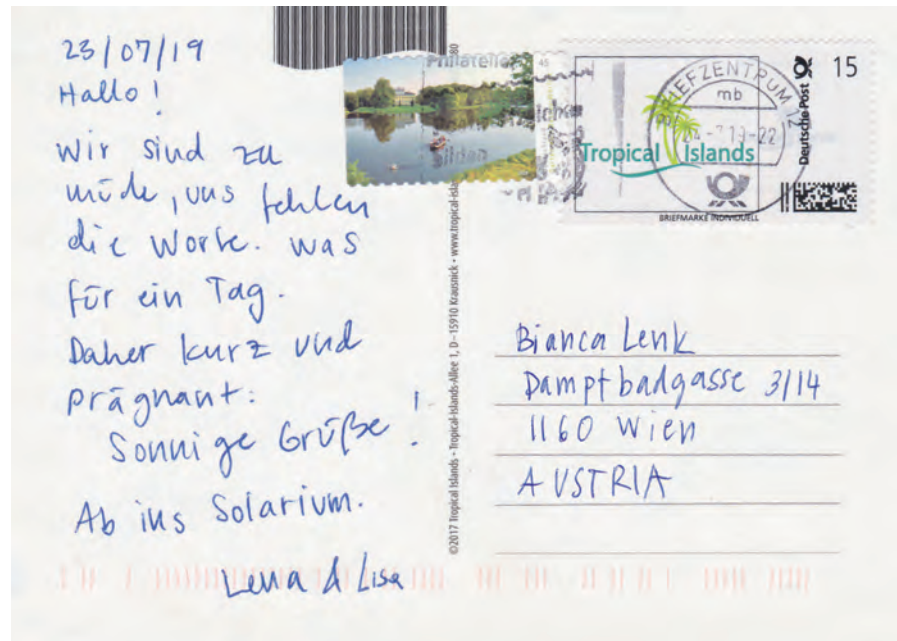 23/07/19
Hallo!
Wir sind zu
müde, uns fehlen
die Worte. Was
für ein Tag.
Daher kurz und
prägnant:
Sonnige Grüße!
Ab ins Solarium.
Lena & Lisa
©2017 Tropical Islands • Tropical-Islands-Allee 1, D–15910 Krausnick • www.tropical-isl
80
Philatelie
45
bilden
BRIEFZENTRUM 12
mb
19-22
Tropical Islands
Deutsche Post
15
BRIEFMARKE INDIVIDUELL
Bianca Lenk
Dampfbadgasse 3/14
1160 Wien
AUSTRIA